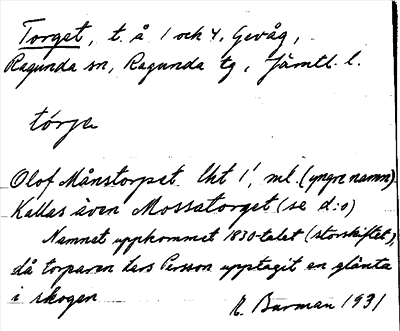 Torget, t. å 1 och 4, Gevåg,
Ragunda sn, Ragunda tg, Jämtl. l.
tórjə
Olof Månstorpet. Lht 1', ml. (yngre namn).
Kallas även Mossatorget (se d:o)
Namnet uppkommet 1830-talet (storskiftet),
då torparen Lars Persson upptagit en glänta
i skogen
R. Burman 1931